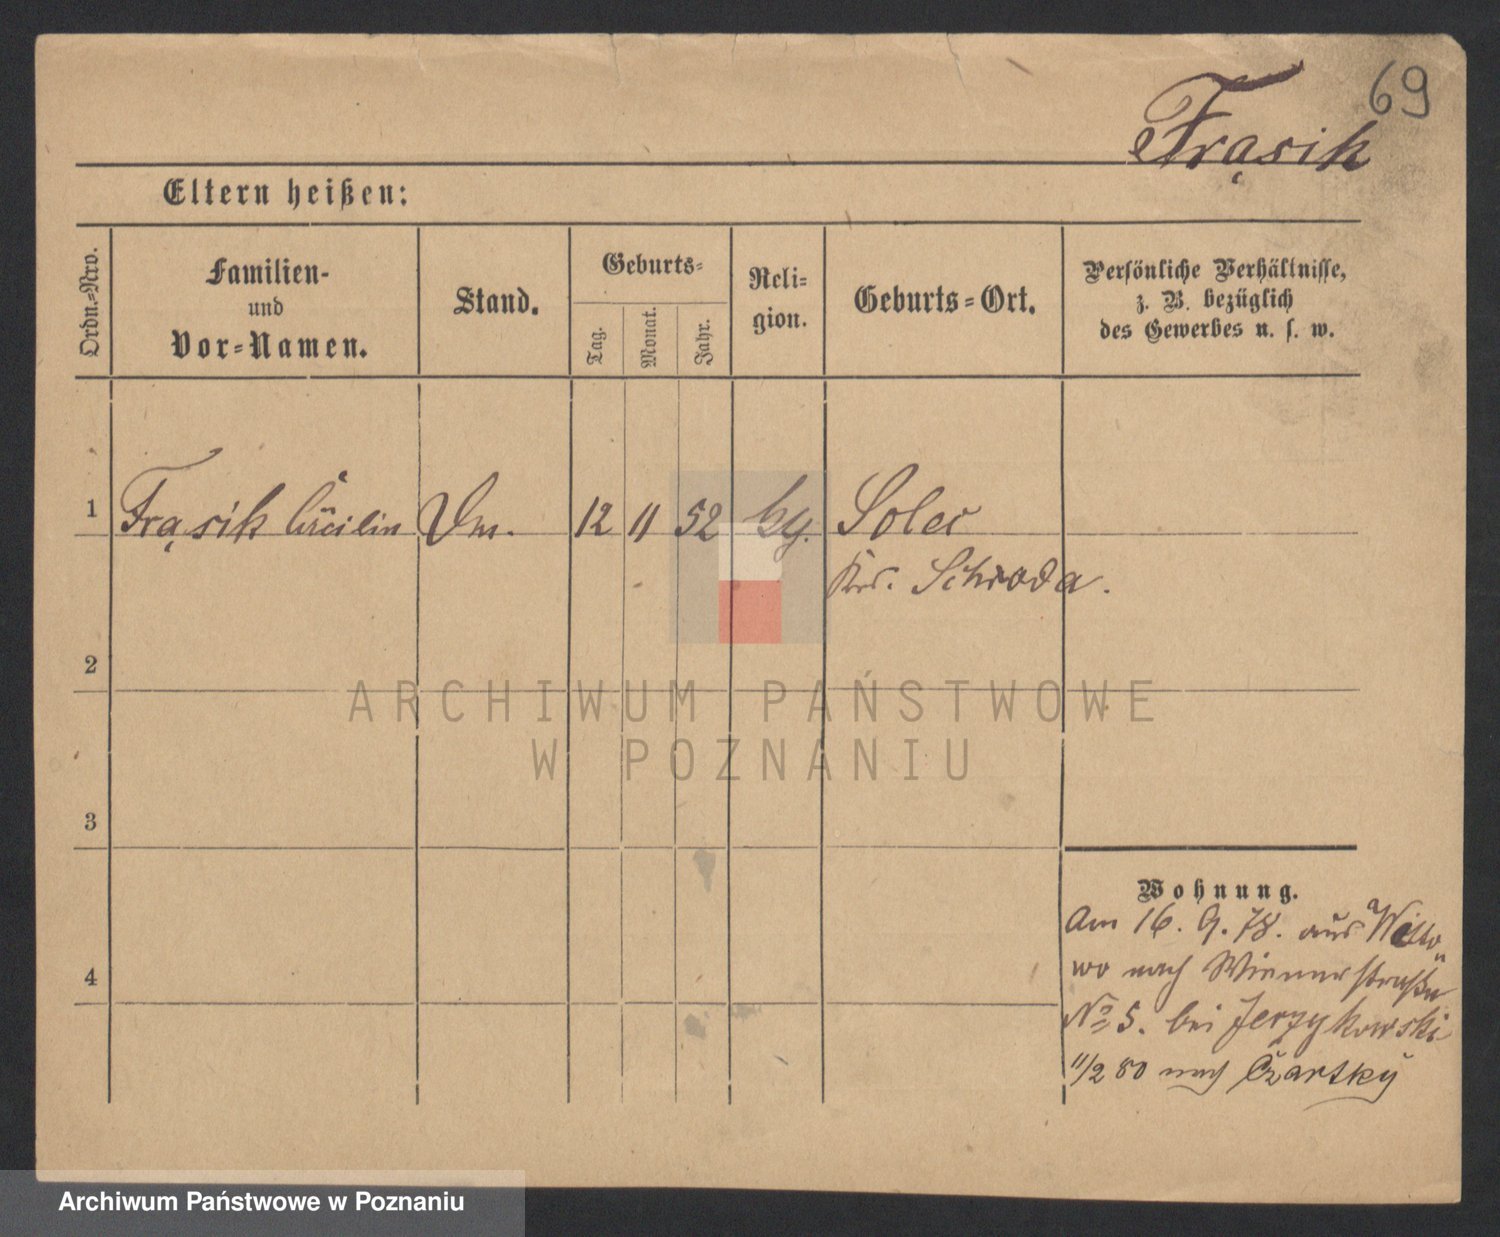 69
Frąsik
Eltern heißen:
Ordn.=Nro.
Familien-
und
Vor=Namen.
Stand.
Geburts=
Tag.
Monat.
Jahr.
Reli=
gion.
Geburts=Ort.
Persönliche Verhältnisse,
z. B. bezüglich
des Gewerbes u. s. w.
1 Frąsik Cäcilin 12 11 52 Solec
Krs. Schroda.
2
3
4
Wohnung.
Am 16. 9. 78. aus
wo nach Wienerstraße
No 5. bei Jerzykowski
11/2 80 nach Czarsky
ARCHIWUM PAŃSTWOWE
W POZNANIU
Archiwum Państwowe w Poznaniu